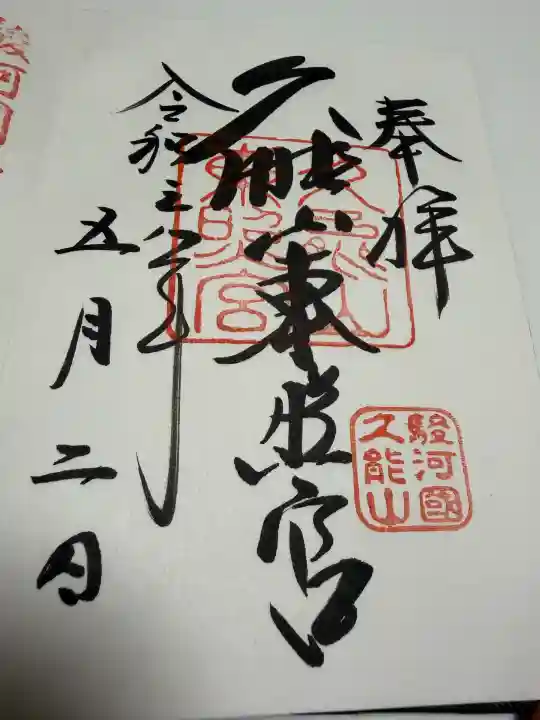 奉拝
久能山東照宮
久能山
東照宮
駿河國
久能山
令和三年
五月二日
駿河國